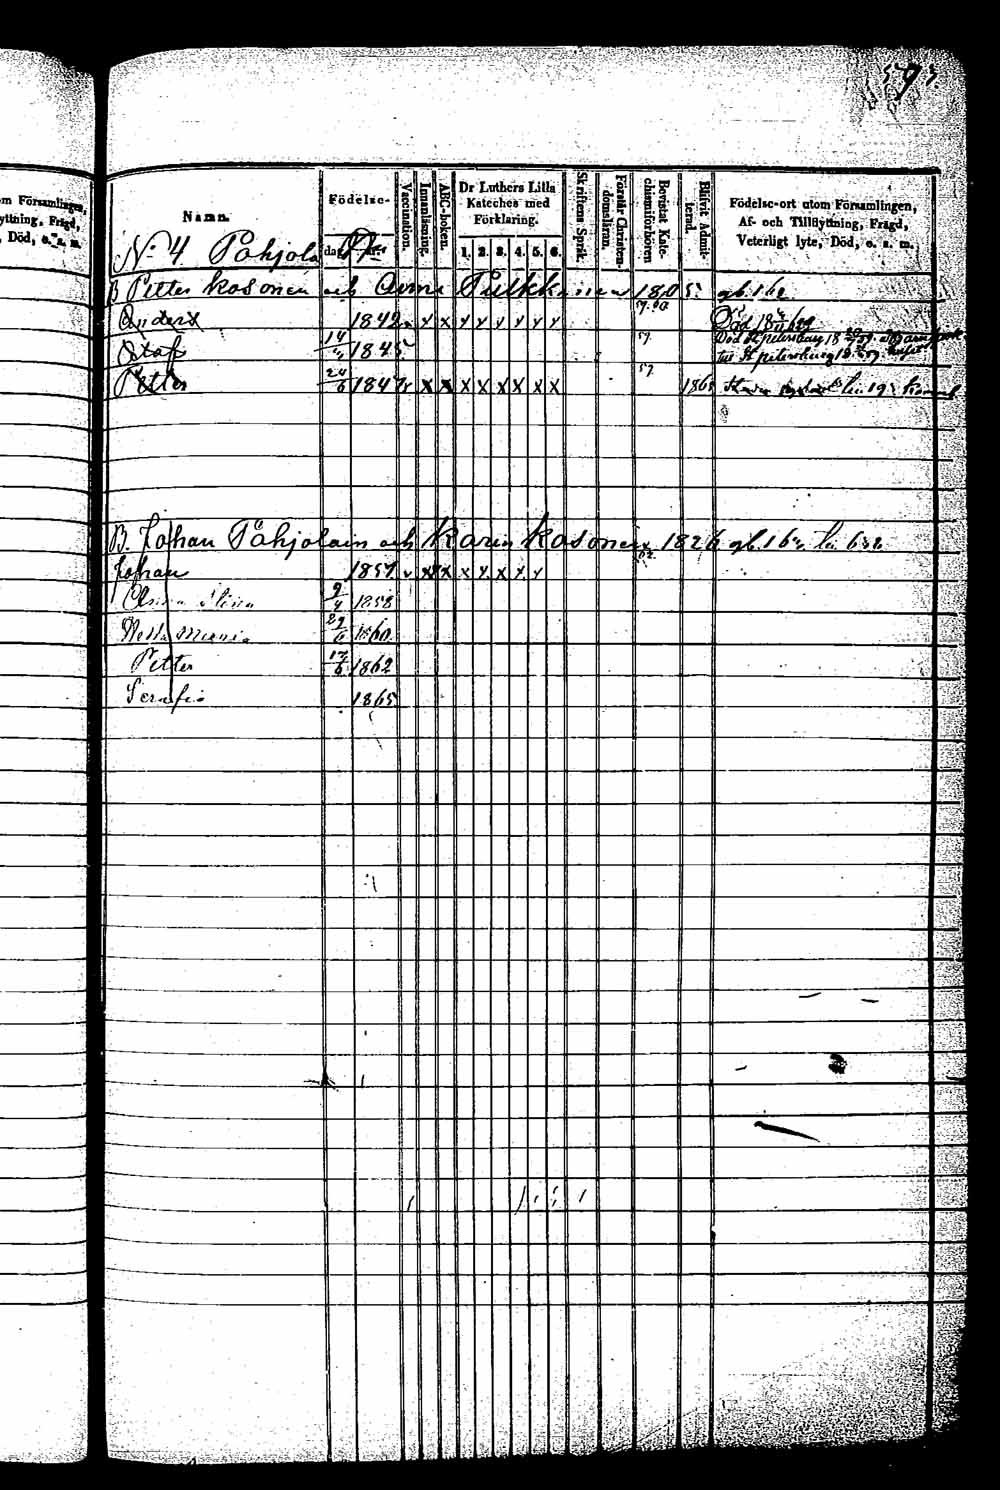 593.
m Församlingen,
yttning, Frägd,
, Död, o. s. m.
Namn.
Födelse-
dag
år.
Vaccination.
Innanläsning.
ABC-boken.
Dr Luthers Lilla
Kateches med
Förklaring.
1. 2. 3. 4. 5. 6.
Skriftens Språk.
Förstår Christen-
domsläran.
Bevistat Kate-
chismiförhören
Blifvit Admit-
terad.
Födelse-ort utom Församlingen,
Af- och Tillflyttning, Frägd,
Veterligt lyte, Död, o. s. m.
No 4 Pohjola
B Petter Kosonen och Anna Pulkkinen 1805. gb. 162
57. 60
Anders 1842 x x x x x x x x x Död
Olof 14 1845 57. Död St petersburg 18
till St petersburg 18
Petter 24/6 1847 x x x x x x x x x 57. 186
B. Johan Pohjolain och Karin Kosonen 1826 gb. 162
Johan 1857 v x x x x x x x
Anna Stina 9/4 1858
Maria 29/6 1860
Petter 17/6 1862
Serafia 1865